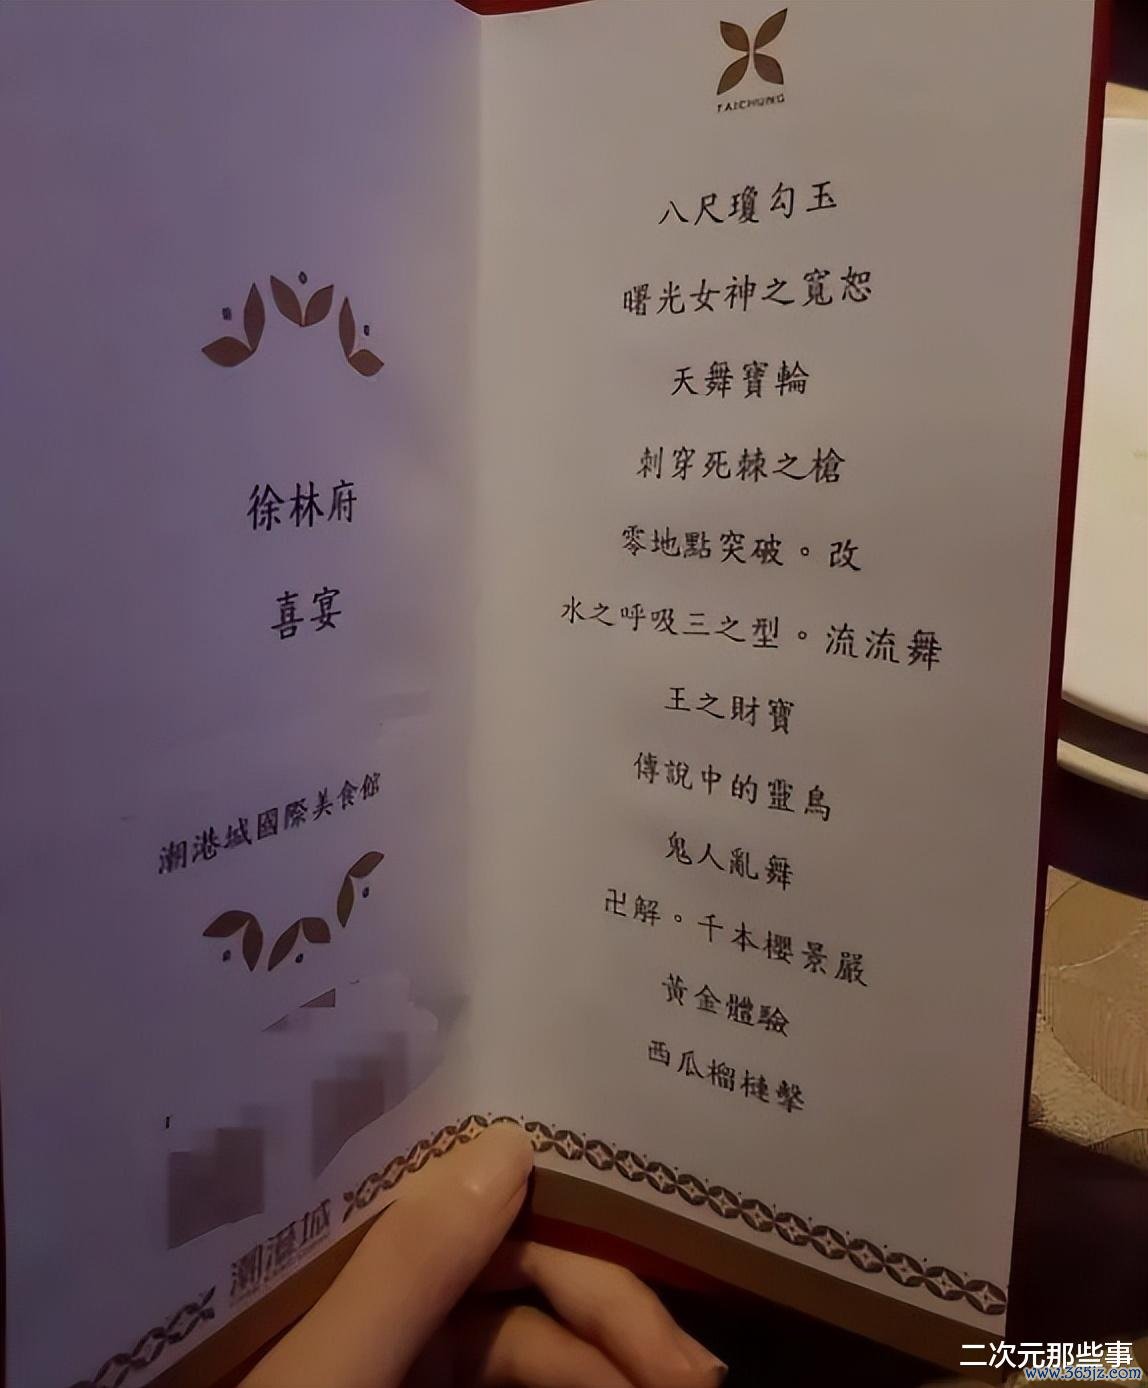 徐林府
喜宴
潮港城國際美食館
潮港城
TAICHUNG
八尺瓊勾玉
曙光女神之寬恕
天舞寶輪
刺穿死棘之槍
零地點突破。改
水之呼吸三之型。流流舞
王之財寶
傳說中的靈鳥
鬼人亂舞
卍解。千本櫻景嚴
黃金體驗
西瓜榴槤擊
二次元那些事
www.365jz.com